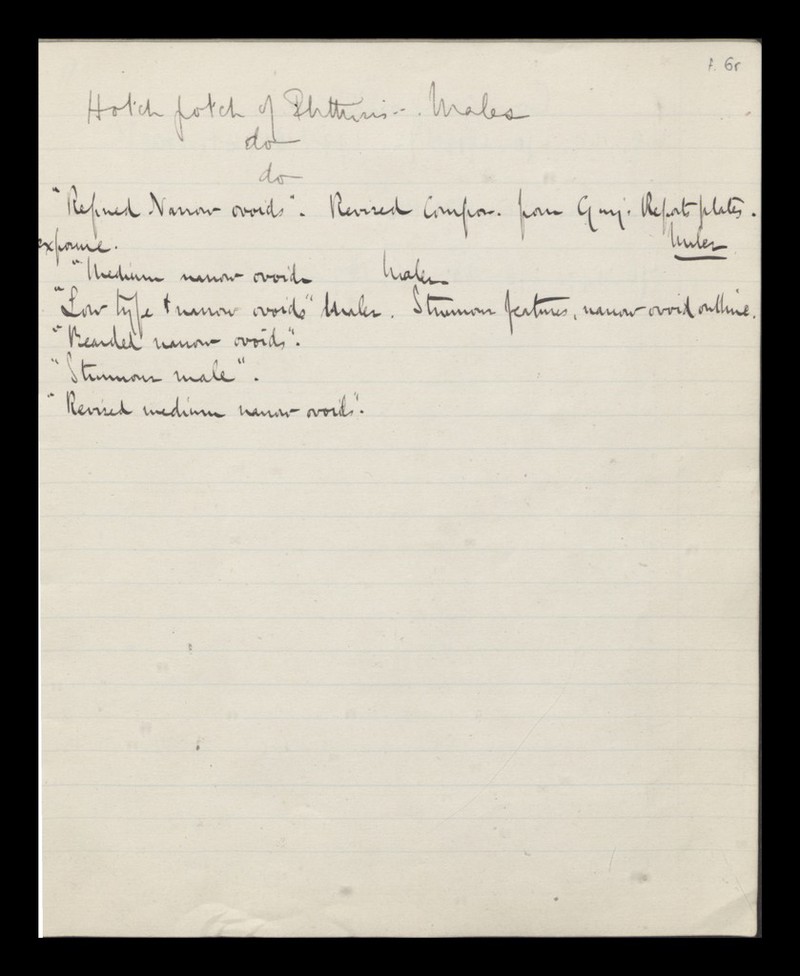 f. 6r
Hotch potch of Phthisis - . Males
do
do
"Refined Narrow ovoids". Revised Compos. from Guy's Reports plates.
exposure. Males
"Medium narrow ovoids Males
"Low type & narrow ovoids" Males. Strumous features, narrow ovoid outline.
"Bearded narrow ovoids".
"Strumous male".
"Revised medium narrow ovoids".